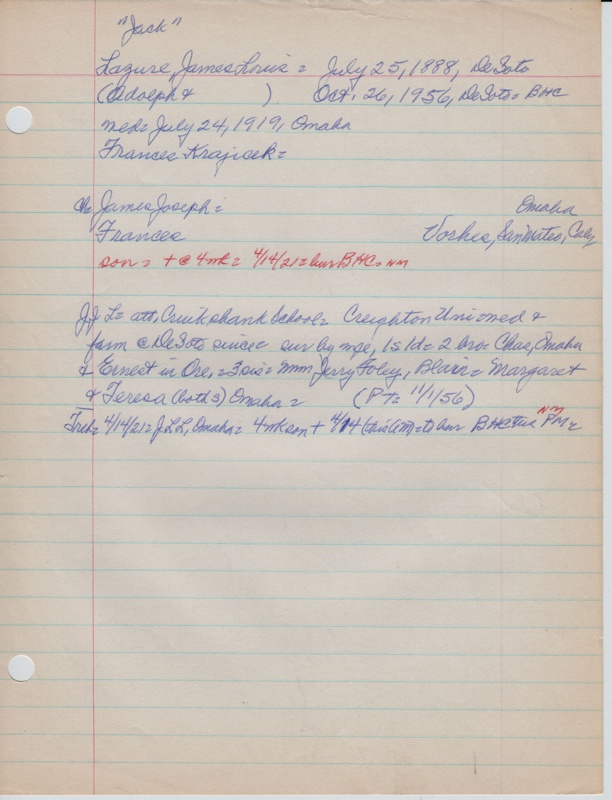 "Jack"
Lazure, James Louis = July 25, 1888, DeSoto
(Adolph & ) Oct. 26, 1956, DeSoto = BHC
med = July 24, 1919, Omaha
Frances Krajicek =
ch = James Joseph = Omaha
Frances Vorhes, San Mateo, Calif
son = + @ 4 mk = 4/14/21 = bur BHC = NM
JJL = att. Cruikshank School = Creighton Uni = med &
farm @ DeSoto since = sur by wife, 1s 1d = 2 bro = Chas, Omaha
& Ernest in Ore. = 3 sis = Mrs Jerry Foley, Blair = Margaret
& Teresa (both s) Omaha = (PT = 11/1/56)
Trib = 4/14/21 = JLL, Omaha = 4 wk son + 4/14 = to bur BHC PM =
NM